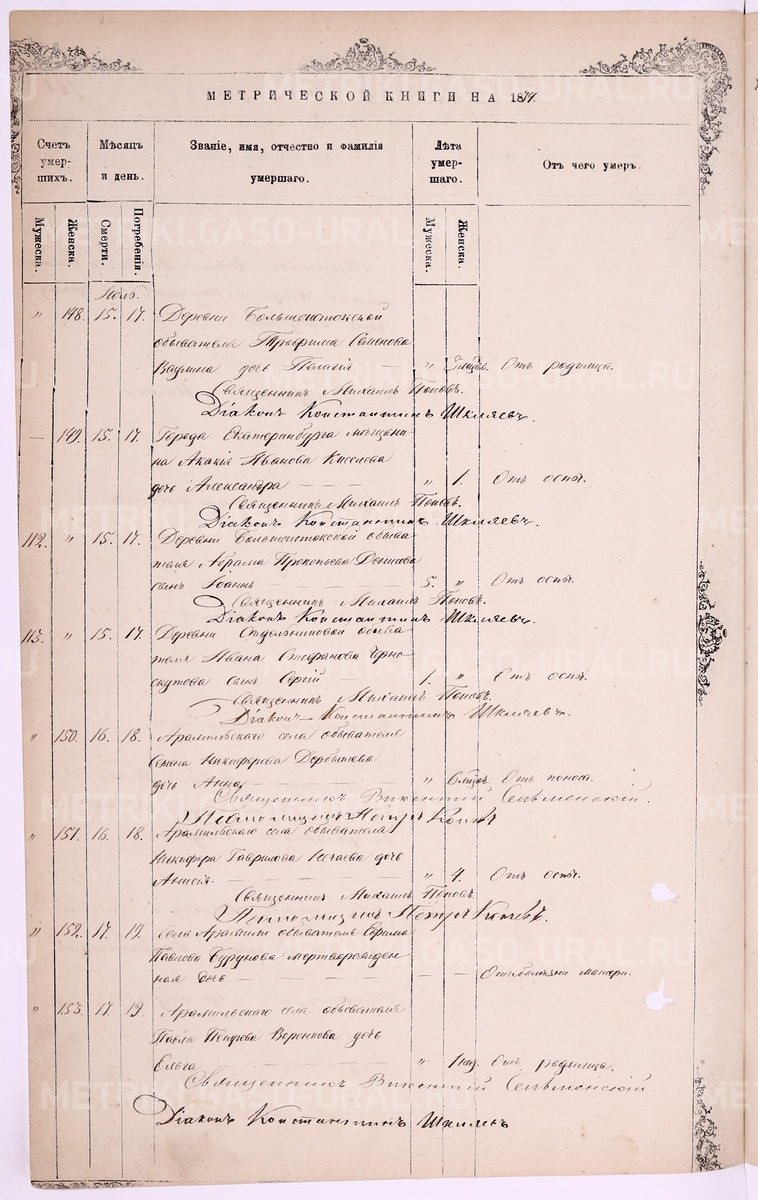 МЕТРИЧЕСКОЙ КНИГИ НА 1874.
Счетъ умерших. Мѣсяцъ и день. Званіе, имя, отчество и фамилія умершаго. Лѣта умершаго. Отъ чего умеръ.
Мужеска. Женска. Смерти. Погребенія. Мужеска. Женска.
Іюль.
" 148. 15. 17. Деревни Большеистокской
обывателя Трофима Семенова
дочь Пелагія — " Отъ родимца.
Священникъ Михаилъ Поповъ.
Діаконъ Константинъ Шкляевъ.
— 149. 15. 17. Города Екатеринбурга мѣщани-
на Акакія Иванова Киселева
дочь Александра — — — " 1. Отъ оспы.
Священникъ Михаилъ Поповъ.
Діаконъ Константинъ Шкляевъ.
112. " 15. 17. Деревни Большеистокской обыва-
теля Абрама Прокопьева Денисова
сынъ Іоаннъ — — — 5. " Отъ оспы.
Священникъ Михаилъ Поповъ.
Діаконъ Константинъ Шкляевъ.
113. " 15. 17. Деревни обыва-
теля Ивана Стефанова Черно-
скутова сынъ Сергій — 1. " Отъ оспы.
Священникъ Михаилъ Поповъ.
Діаконъ Константинъ Шкляевъ.
" 150. 16. 18. Арамильскаго села обывателя
Семена Никифорова Дербышева
дочь Анна — — — " 6 мѣсяц. Отъ поноса.
Священникъ Викентій Сельменскій.
Псаломщикъ Петръ
" 151. 16. 18. Арамильскаго села обывателя
Никифора Гаврилова Нечаева дочь
Анисія — — — " 4. Отъ оспы.
Священникъ Михаилъ Поповъ.
Псаломщикъ Петръ
" 152. 17. 19. Села Арамили обывателя Ефима
Павлова Бурдукова мертворожден-
ная дочь — — — — — Отъ болѣзни матери.
" 153. 17. 19. Арамильскаго села обывателя
Павла Петрова Воронкова дочь
Ольга — — — " 1 нед. Отъ родимца.
Священникъ Викентій Сельменскій.
Діаконъ Константинъ Шкляевъ
METRIKI.GASO-URAL.RU